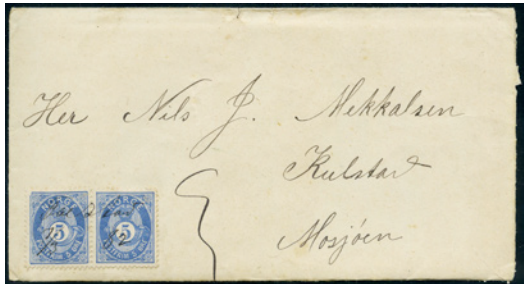 Her Nils J. Mekkalsen
Kulstad
Mosjöen
NORGE NORGE
5 5